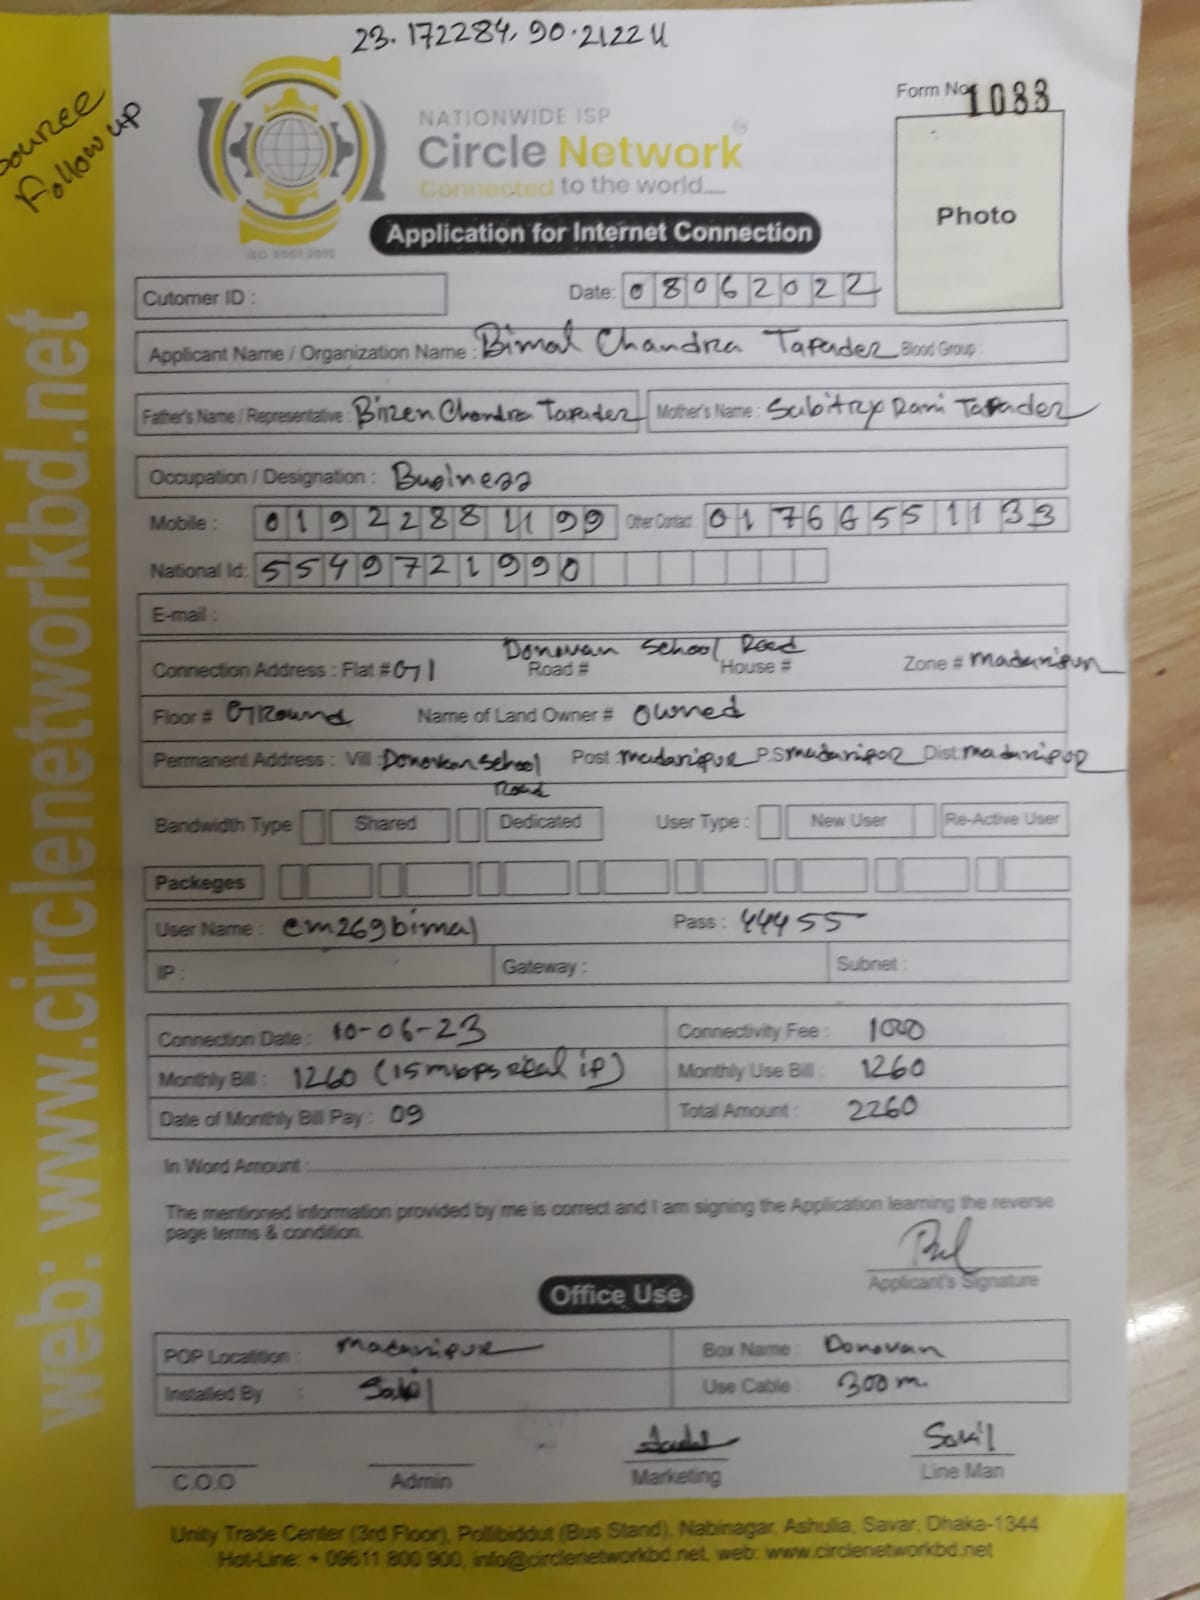 23.172284, 90.2122
source
Follow up
Form No 1033
NATIONWIDE ISP
Circle Network
Connected to the world....
ISO 9001:2015
Photo
Application for Internet Connection
Cutomer ID :
Date: 08062022
Applicant Name / Organization Name : Bimal Chandra Tapader Blood Group :
Father's Name / Representative : Biren Chandra Tapader Mother's Name : Sabitry Rani Tapader
Occupation / Designation : Business
Mobile : 01922884199 Other Contact 01766551133
National Id: 5549721990
E-mail :
Connection Address : Flat # G1 Road # Donovan School Road House # Zone # Madaripur
Floor # Ground Name of Land Owner # owned
Permanent Address : Vill : Donovan School Road Post : madaripur P.S madaripur Dist: madaripur
Bandwidth Type Shared Dedicated User Type : New User Re-Active User
Packeges
User Name : cm269bimal Pass : 44455
IP : Gateway : Subnet :
Connection Date : 10-06-23 Connectivity Fee : 1000
Monthly Bill : 1260 (15 mbps real ip) Monthly Use Bill : 1260
Date of Monthly Bill Pay : 09 Total Amount : 2260
In Word Amount :
The mentioned information provided by me is correct and I am signing the Application learning the reverse
page terms & condition.
Applicant's Signature
Office Use
POP Localition : Madaripur Box Name : Donovan
Installed By : Use Cable : 300 m.
C.O.O Admin Marketing Line Man
Unity Trade Center (3rd Floor), Pollibiddut (Bus Stand), Nabinagar, Ashulia, Savar, Dhaka-1344
Hot-Line: + 09611 800 900, info@circlenetworkbd.net, web: www.circlenetworkbd.net
web: www.circlenetworkbd.net